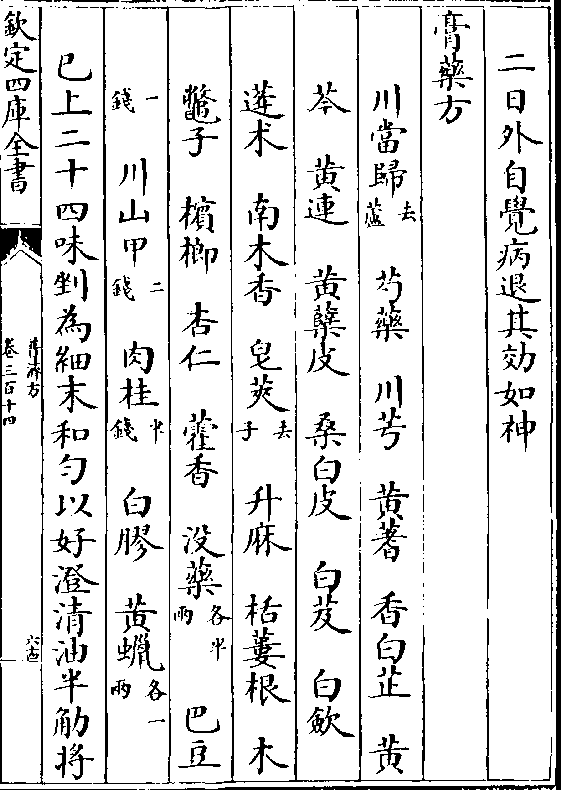 二日外自覺病退其効如神
膏藥方
川當歸去蘆 芍藥 川芎 黄蓍 香白芷 黄
芩 黄連 黄蘗皮 桑白皮 白芨 白歛
蓬术 南木香 皂莢去子 升麻 栝蔞根 木
鼈子 檳榔 杏仁 藿香 没藥各半兩 巴豆
一錢 川山甲二錢 肉桂半錢 白膠 黄蠟各一兩
已上二十四味剉為細末和勻以好澄清油半觔將
欽定四庫全書
普濟方
卷三百十四